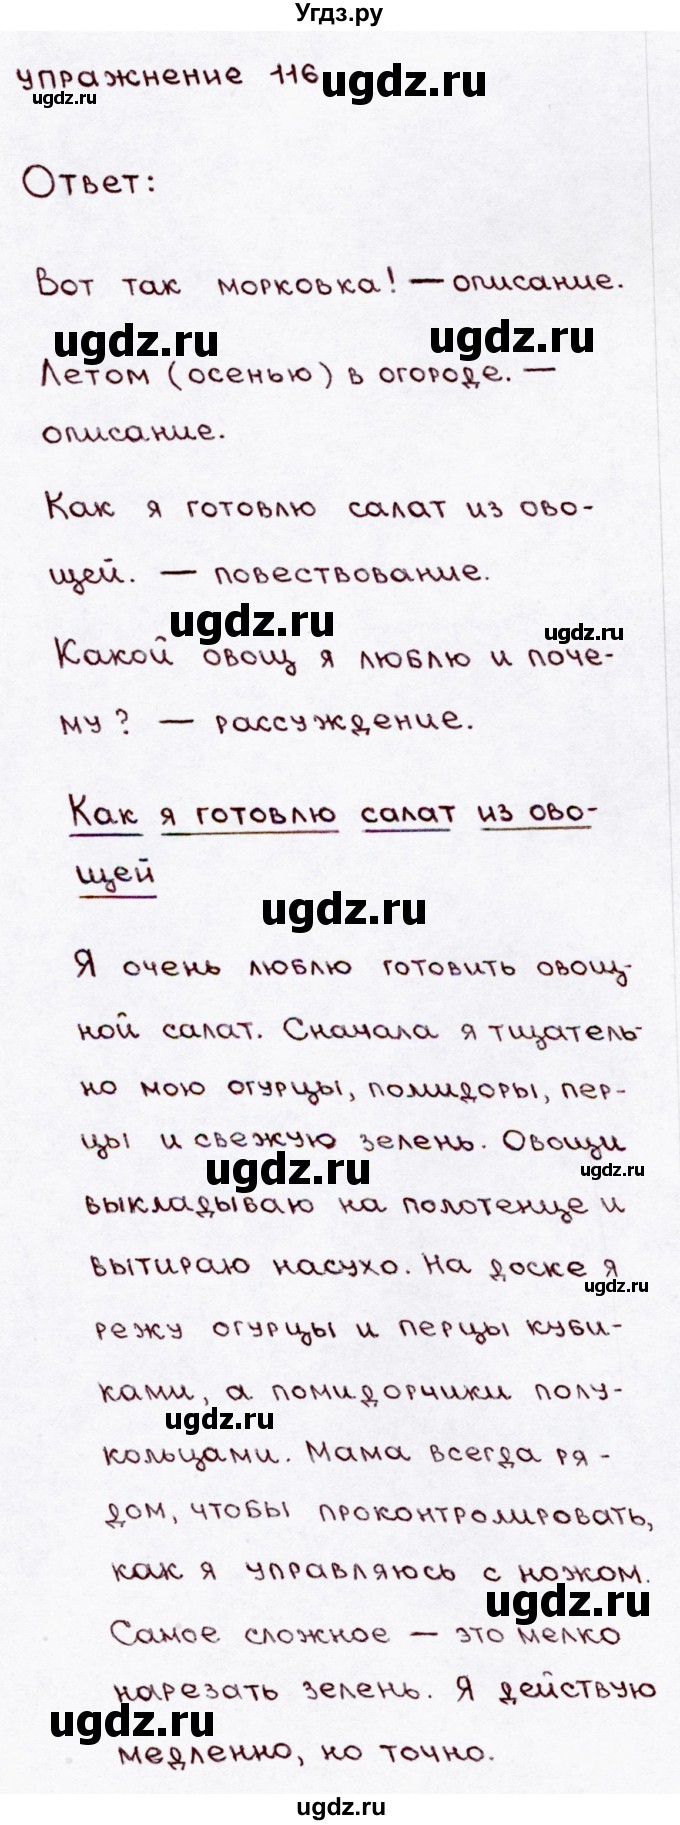 Угдз.ру
упражнение 116
ugdz.ru
ugdz.ru
Ответ:
Вот так морковка! — описание.
ugdz.ru
ugdz.ru
Летом (осенью) в огороде. —
описание.
Как я готовлю салат из ово-
щей. — повествование.
ugdz.ru
ugdz.ru
Какой овощ я люблю и поче-
му? — рассуждение.
Как я готовлю салат из ово-
щей
ugdz.ru
Я очень люблю готовить овощ-
ной салат. Сначала я тщатель-
но мою огурцы, помидоры, пер-
цы и свежую зелень. Овощи
ugdz.ru
ugdz.ru
выкладываю на полотенце и
вытираю насухо. На доске я
ugdz.ru
режу огурцы и перцы куби-
ками, а помидорчики полу-
ugdz.ru
кольцами. Мама всегда ря-
дом, чтобы проконтролировать,
как я управляюсь с ножом.
ugdz.ru
Самое сложное — это мелко
нарезать зелень. Я действую
ugdz.ru
медленно, но точно.
ugdz.ru